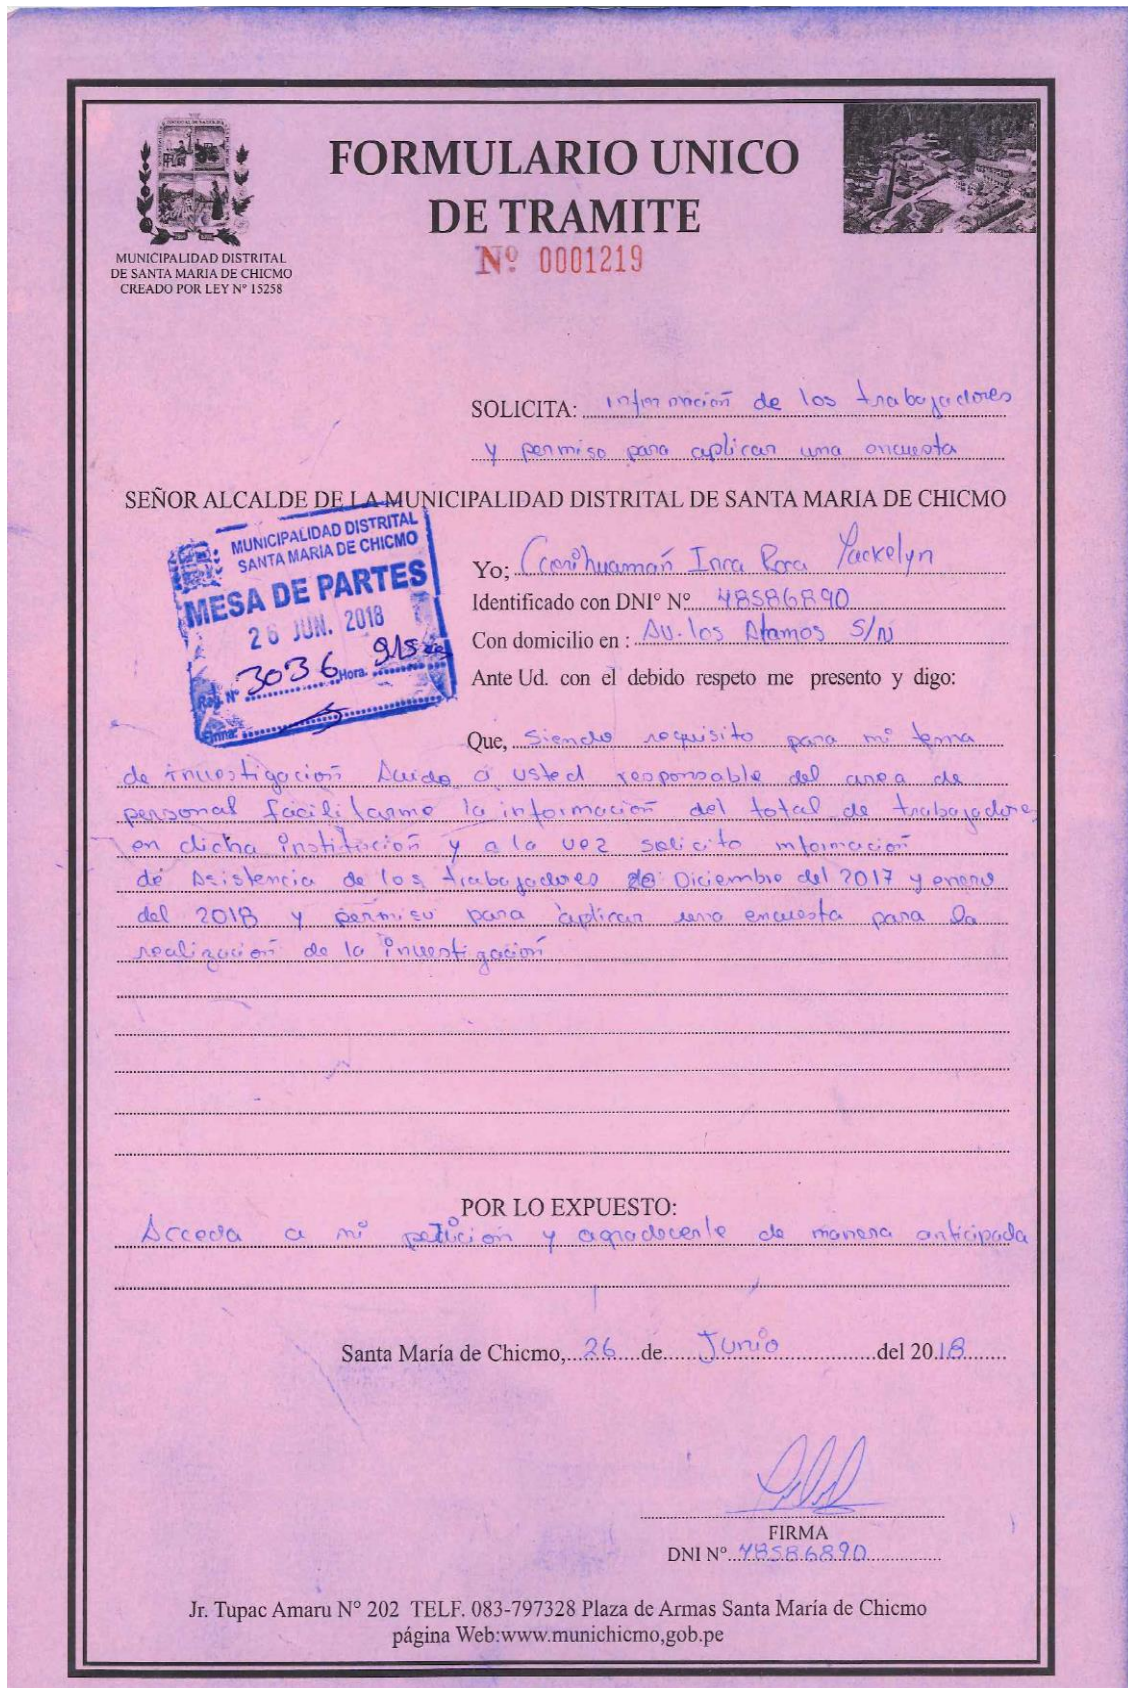 FORMULARIO UNICO
DE TRAMITE
Nº 0001219
MUNICIPALIDAD DISTRITAL
DE SANTA MARIA DE CHICMO
CREADO POR LEY Nº 15258
SOLICITA: información de los trabajadores
y permiso para aplicar una encuesta
SEÑOR ALCALDE DE LA MUNICIPALIDAD DISTRITAL DE SANTA MARIA DE CHICMO
MUNICIPALIDAD DISTRITAL
SANTA MARIA DE CHICMO
MESA DE PARTES
26 JUN. 2018
Reg. Nº 3036 Hora 915
Firma:
Yo; Ccorihuamán Inca Yackelyn
Identificado con DNIº Nº 48586890
Con domicilio en : Av. los Alamos S/N
Ante Ud. con el debido respeto me presento y digo:
Que, Siendo requisito para mi tema
de investigación Acido a usted responsable del area de
personal facilitarme la información del total de trabajadores
en dicha institución y a la vez solicito información
de Asistencia de los trabajadores de Diciembre del 2017 y enero
del 2018 y permiso para aplicar una encuesta para la
realización de la investigación
POR LO EXPUESTO:
Acceda a mi petición y agradecerle de manera anticipada
Santa María de Chicmo, 26 de Junio del 2018
FIRMA
DNI Nº 48586890
Jr. Tupac Amaru N° 202 TELF. 083-797328 Plaza de Armas Santa María de Chicmo
página Web:www.munichicmo,gob.pe